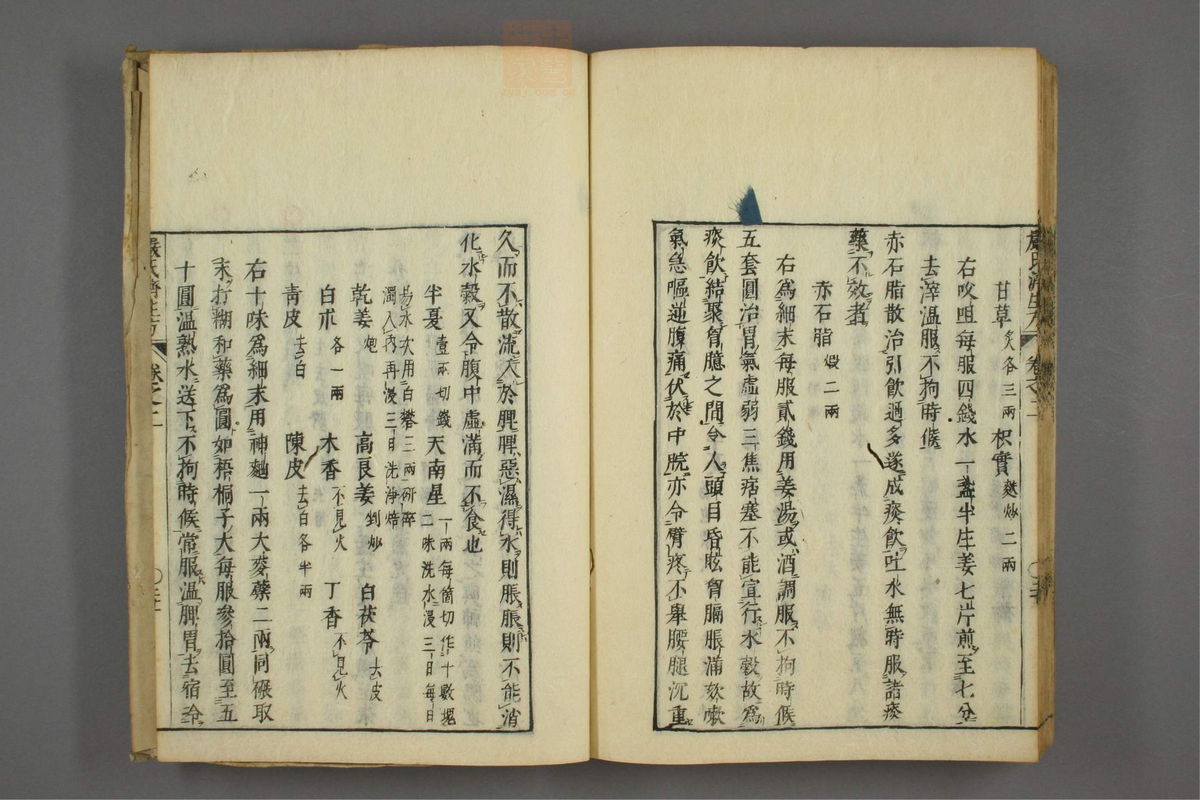 甘草炙各三兩 枳實麩炒二兩
右㕮咀每服四錢水一盞半生姜七片煎至七分
去滓溫服不拘時候
赤石脂散治引飲過多遂成痰飲吐水無時服諸痰
藥不效者
赤石脂煅二兩
右為細末每服貳錢用姜湯或酒調服不拘時候
五套圓治胃氣虛弱三焦痞塞不能宣行水穀故為
痰飲結聚胷臆之間令人頭目昏眩胷膈脹滿欬嗽
氣急嘔逆腹痛伏於中脘亦令臂疼不舉腰腿沉重
嚴氏濟生方 卷之二
久而不散流入於脾脾惡濕得水則脹脹則不能消
化水穀又令腹中虛滿而不食也
半夏壹兩切錢 天南星一兩每箇切作十數塊
湯水次用白礬三兩研碎 二味洗水浸三日每日
濁入內再浸三日洗淨焙
乾姜炮 高良姜剉炒 白茯苓去皮
白朮各一兩 木香不見火 丁香不見火
青皮去白 陳皮去白各半兩
右十味為細末用神麯一兩大麥蘖二兩同碾取
末打糊和藥為圓如梧桐子大每服參拾圓至五
十圓溫熟水送下不拘時候常服溫脾胃去宿冷
嚴氏濟生方 卷之二